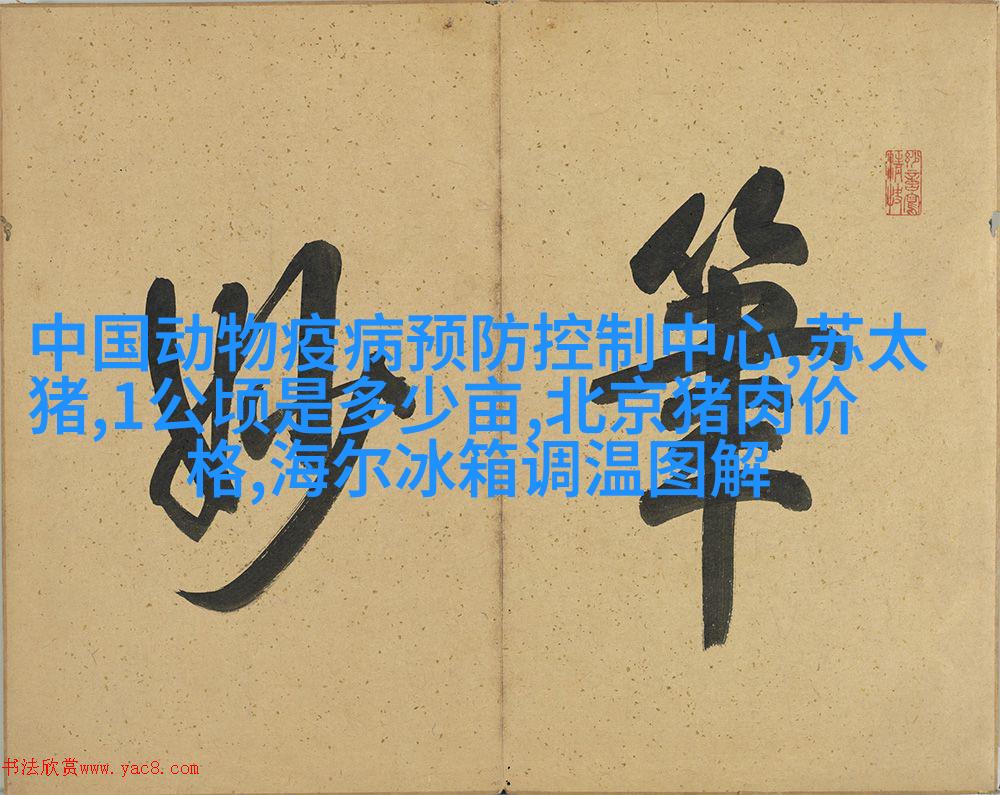 妙筆
中国动物疫病预防控制中心,苏太
猪,1公顷是多少亩,北京猪肉价
格,海尔冰箱调温图解
书法欣赏www.yac8.com